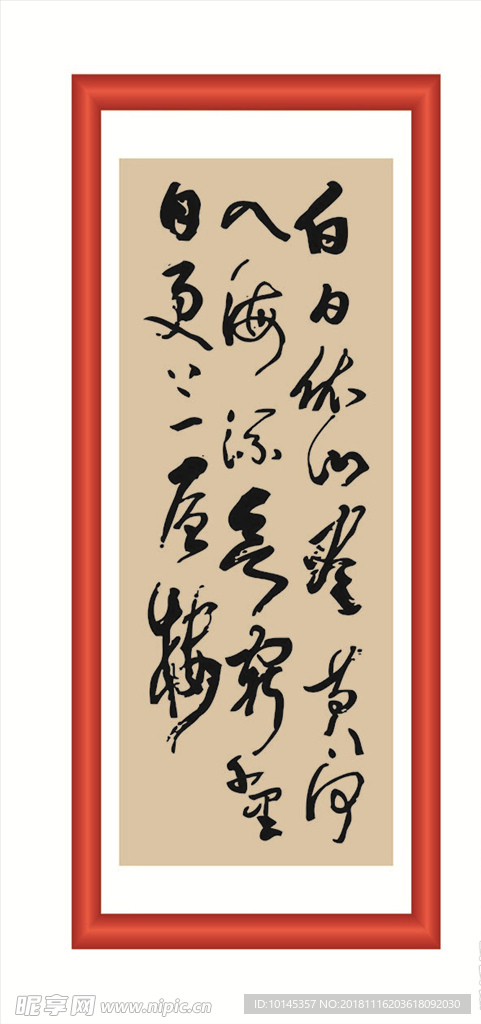 白日依山盡黄河
入海流欲窮千里
目更上一层樓
昵享网 www.nipic.cn
ID:10145357 NO:20181116203618092030